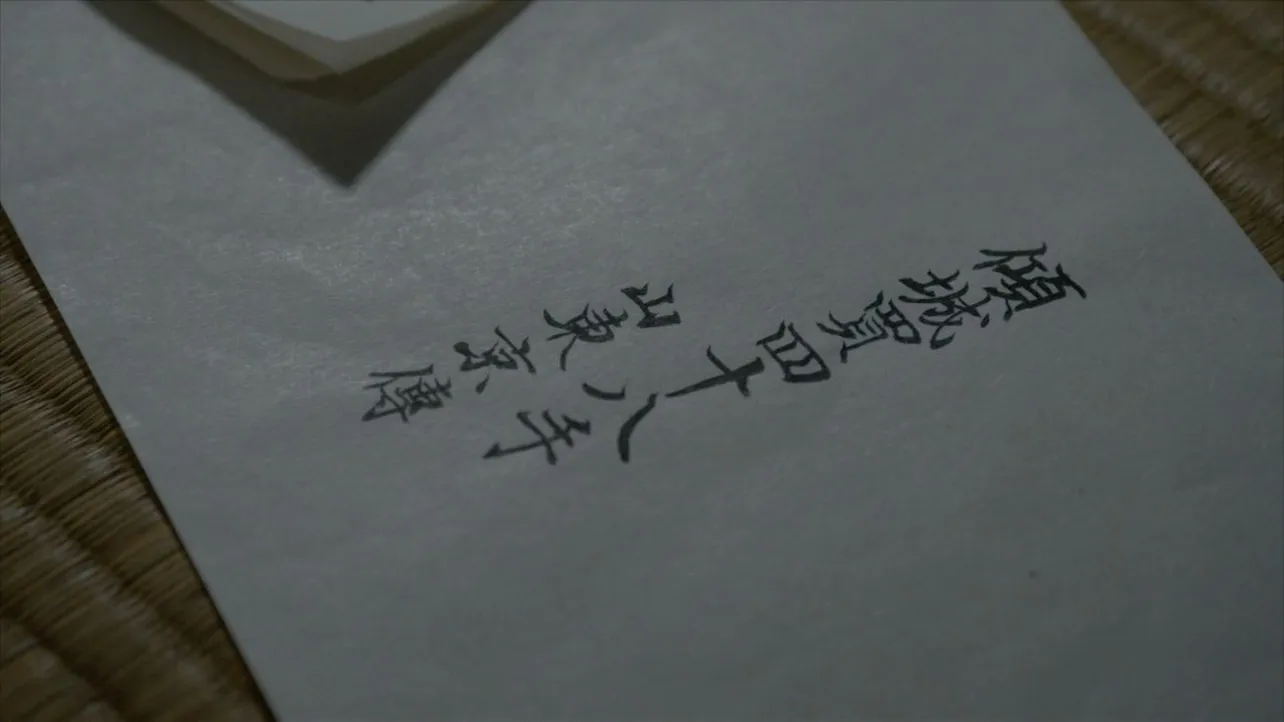 傾城買四十八手
山東京傳